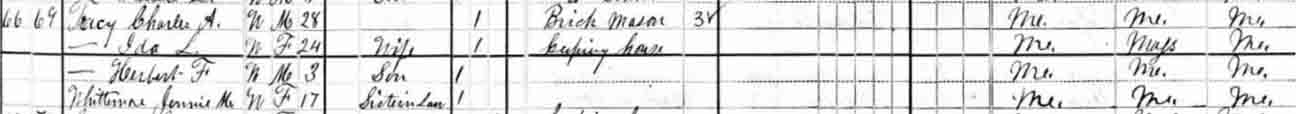 66 69 Tracy Charles A. W M 28 1 Brick Mason 3 Me. Me. Me.
— Ida L. W F 24 Wife 1 Keeping house Me. Mass Me.
— Herbert F W M 3 Son 1 Me. Me. Me.
Whittemore Jennie M W F 17 Sister in Law 1 Me. Me. Me.